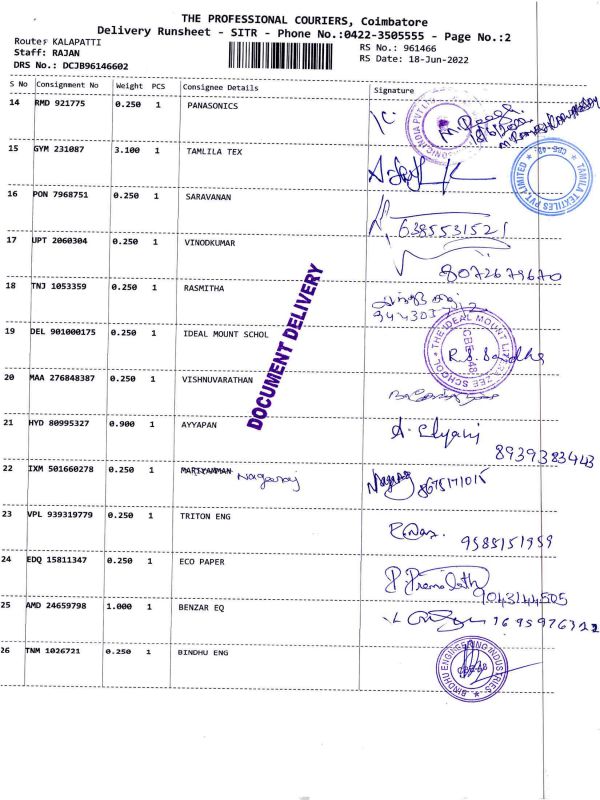 THE PROFESSIONAL COURIERS, Coimbatore
Delivery Runsheet - SITR - Phone No.:0422-3505555 - Page No.:2
Route: KALAPATTI
RS No.: 961466
Staff: RAJAN
RS Date: 18-Jun-2022
DRS No.: DCJB96146602
S No Consignment No Weight PCS Consignee Details Signature
14 RMD 921775 0.250 1 PANASONICS
15 GYM 231087 3.100 1 TAMLILA TEX
TAMILA TEXTILES PVT. LIMITED CBE-48
16 PON 7968751 0.250 1 SARAVANAN
6385531521
17 UPT 2060304 0.250 1 VINODKUMAR
8072679670
18 TNJ 1053359 0.250 1 RASMITHA
DOCUMENT DELIVERY
19 DEL 901000175 0.250 1 IDEAL MOUNT SCHOL
THE IDEAL MOUNT LITERA ZEE SCHOOL CBE-48
20 MAA 276848387 0.250 1 VISHNUVARATHAN
21 HYD 80995327 0.900 1 AYYAPAN
8939383443
22 IXM 501660278 0.250 1 MARIYAMMAN Nagaraj
8675171015
23 VPL 939319779 0.250 1 TRITON ENG
9588151959
24 EDQ 15811347 0.250 1 ECO PAPER
P Premalath
9043144505
25 AMD 24659798 1.000 1 BENZAR EQ
26 TNM 1026721 0.250 1 BINDHU ENG
BINDHU ENGINEERING INDUSTRIES